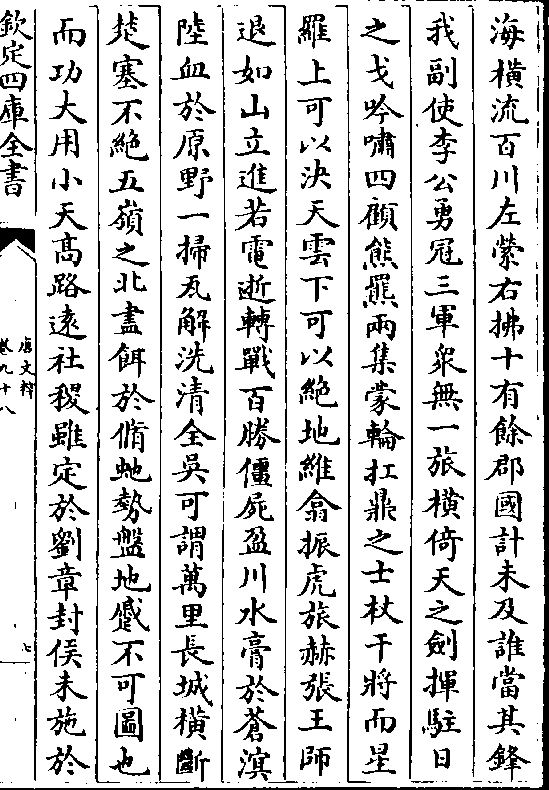 海橫流百川左縈右拂十有餘郡國計未及誰當其鋒
我副使李公勇冠三軍衆無一旅橫倚天之劍揮駐日
之戈吟嘯四顧熊羆兩集蒙輪扛鼎之士杖干將而星
羅上可以決天雲下可以絶地維翕振虎旅赫張王師
退如山立進若電逝轉戰百勝僵屍盈川水膏於蒼溟
陸血於原野一掃瓦解洗清全吳可謂萬里長城橫斷
楚塞不絶五嶺之北盡餌於脩虵勢盤地蹙不可圖也
而功大用小天髙路遠社稷雖定於劉章封侯未施於
欽定四庫全書
唐文粹
卷九十八
七